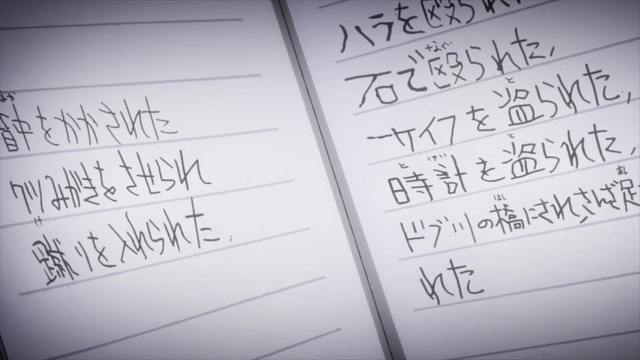 背中をかかされた
クツみがきをさせられ
蹴りを入れられた。
ハラを殴られ
石で殴られた、
サイフを盗られた、
時計を盗られた、
ドブ川の橋にされ、さんざ足
れた